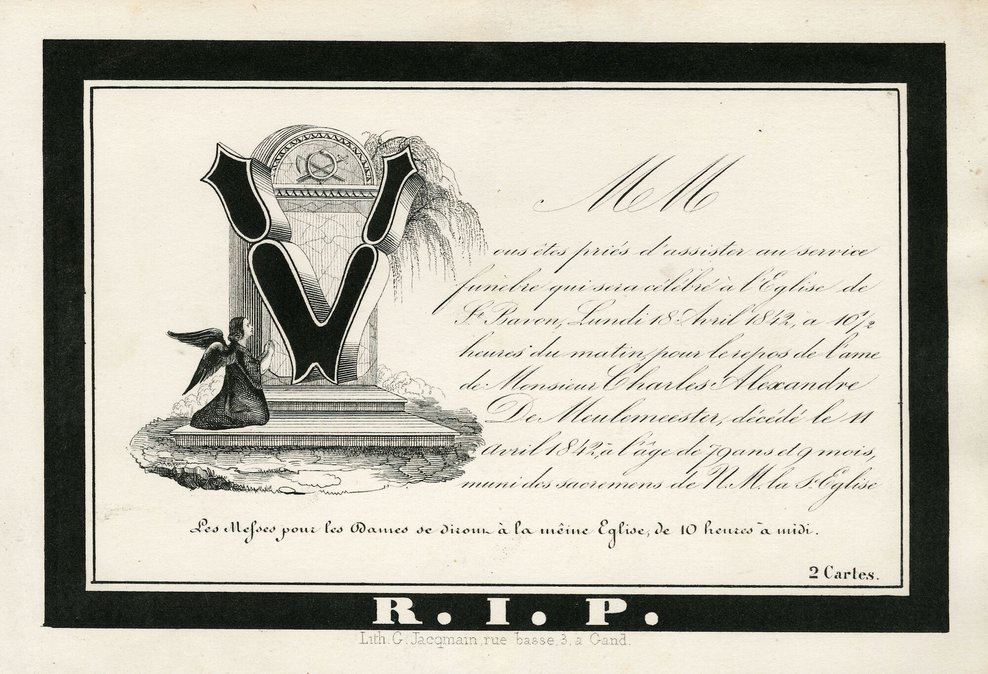 MM
Vous êtes priés d'assister au service
funèbre qui sera célébré à l'Eglise de
St. Bavon, Lundi 18 Avril 1842, à 10 1/2
heures du matin, pour le repos de l'ame
de Monsieur Charles Alexandre
De Meulemeester, décédé le 11
avril 1842, à l'âge de 79 ans et 9 mois,
muni des sacremens de N. M. la Ste Eglise
Les Messes pour les Dames se diront à la même Eglise, de 10 heures à midi.
2 Cartes.
R. I. P.
Lith. G. Jacqmain, rue basse, 3, a Gand.